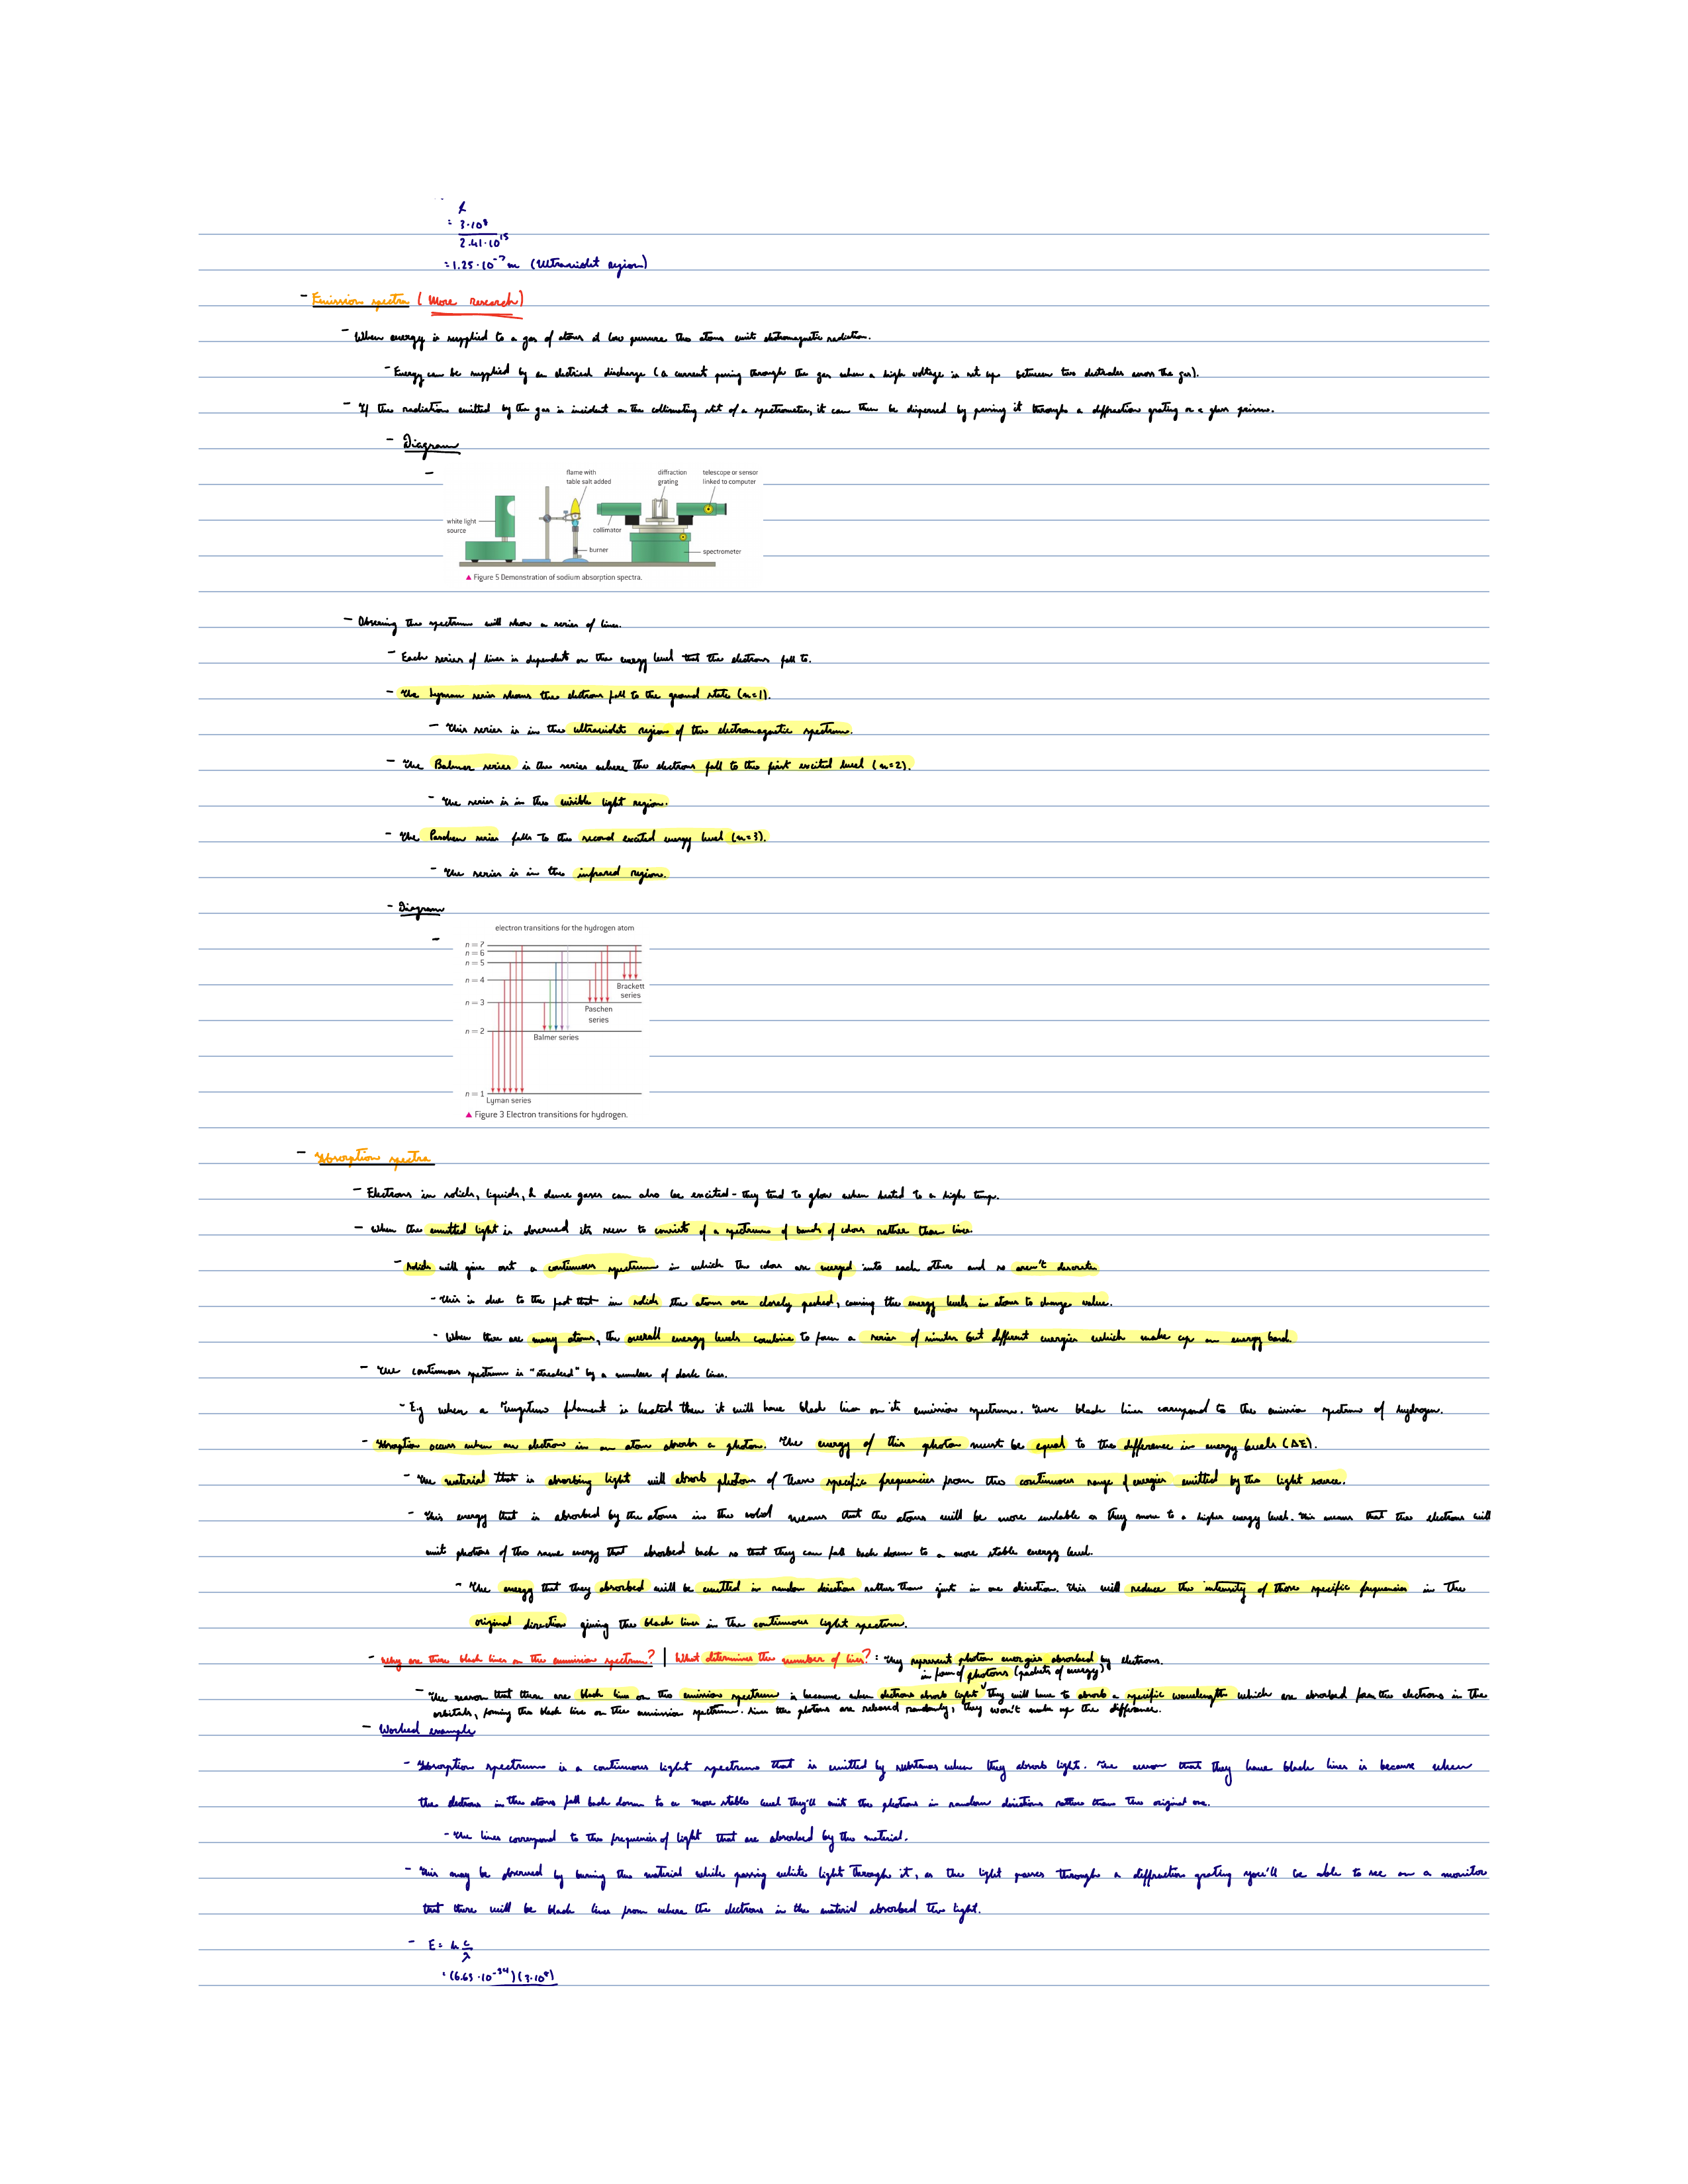 f
= 3·10⁸
2.41·10¹⁵
= 1.25·10⁻⁷ m (Ultraviolet region)
- Emission spectra (More research)
- When energy is supplied to a gas of atoms at low pressure the atoms emit electromagnetic radiation.
- Energy can be supplied by an electrical discharge (a current passing through the gas when a high voltage is set up between two electrodes across the gas).
- If the radiation emitted by the gas is incident on the collimating slit of a spectrometer, it can then be dispersed by passing it through a diffraction grating or a glass prism.
- Diagram
-
flame with table salt added
diffraction grating
telescope or sensor linked to computer
white light source
collimator
burner
spectrometer
▲ Figure 5 Demonstration of sodium absorption spectra.
- Observing the spectrum will show a series of lines.
- Each series of lines is dependent on the energy level that the electrons fall to.
- The Lyman series shows the electrons fall to the ground state (n=1).
- This series is in the ultraviolet region of the electromagnetic spectrum.
- The Balmer series is the series where the electrons fall to the first excited level (n=2).
- The series is in the visible light region.
- The Paschen series falls to the second excited energy level (n=3).
- The series is in the infrared region.
- Diagram
-
electron transitions for the hydrogen atom
n = 7
n = 6
n = 5
n = 4
Brackett series
n = 3
Paschen series
n = 2
Balmer series
n = 1
Lyman series
▲ Figure 3 Electron transitions for hydrogen.
- Absorption spectra
- Electrons in solids, liquids, & dense gases can also be excited - they tend to glow when heated to a high temp.
- When the emitted light is observed its seen to consists of a spectrum of bands of colors rather than lines.
- Solids will give out a continuous spectrum in which the colors are merged into each other and so aren't discrete
- This is due to the fact that in solids the atoms are closely packed, causing the energy levels in atoms to change value.
- When there are many atoms, the overall energy levels combine to form a series of similar but different energies which make up an energy band.
- The continuous spectrum is "streaked" by a number of dark lines.
- Eg when a Tungsten filament is heated then it will have black lines on its emission spectrum. These black lines correspond to the emission spectrum of hydrogen.
- Absorption occurs when an electron in an atom absorbs a photon. The energy of this photon must be equal to the difference in energy levels (ΔE).
- The material that is absorbing light will absorb photons of these specific frequencies from the continuous range of energies emitted by the light source.
- This energy that is absorbed by the atoms in the solid means that the atoms will be more unstable as they move to a higher energy level. This means that the electrons will
emit photons of the same energy that absorbed back so that they can fall back down to a more stable energy level.
- The energy that they absorbed will be emitted in random directions rather than just in one direction. This will reduce the intensity of those specific frequencies in the
original direction giving the black lines in the continuous light spectrum.
- Why are there black lines on the emission spectrum? | What determines the number of lines? : They represent photon energies absorbed by electrons.
in form of photons (packets of energy)
- The reason that there are black lines on the emission spectrum is because when electrons absorb light they will have to absorb a specific wavelength which are absorbed from the electrons in the
orbitals, forming the black line on the emission spectrum. Since the photons are released randomly, they won't make up the difference.
- Worked example
- Absorption spectrum is a continuous light spectrum that is emitted by substances when they absorb light. The reason that they have black lines is because when
the electrons in the atoms fall back down to a more stable level they'll emit the photons in random directions rather than the original one.
- The lines correspond to the frequencies of light that are absorbed by the material.
- This may be observed by burning the material while passing white light through it, as the light passes through a diffraction grating you'll be able to see on a monitor
that there will be black lines from where the electrons in the material absorbed the light.
- E = h c/λ
= (6.63·10⁻³⁴)(3·10⁸)